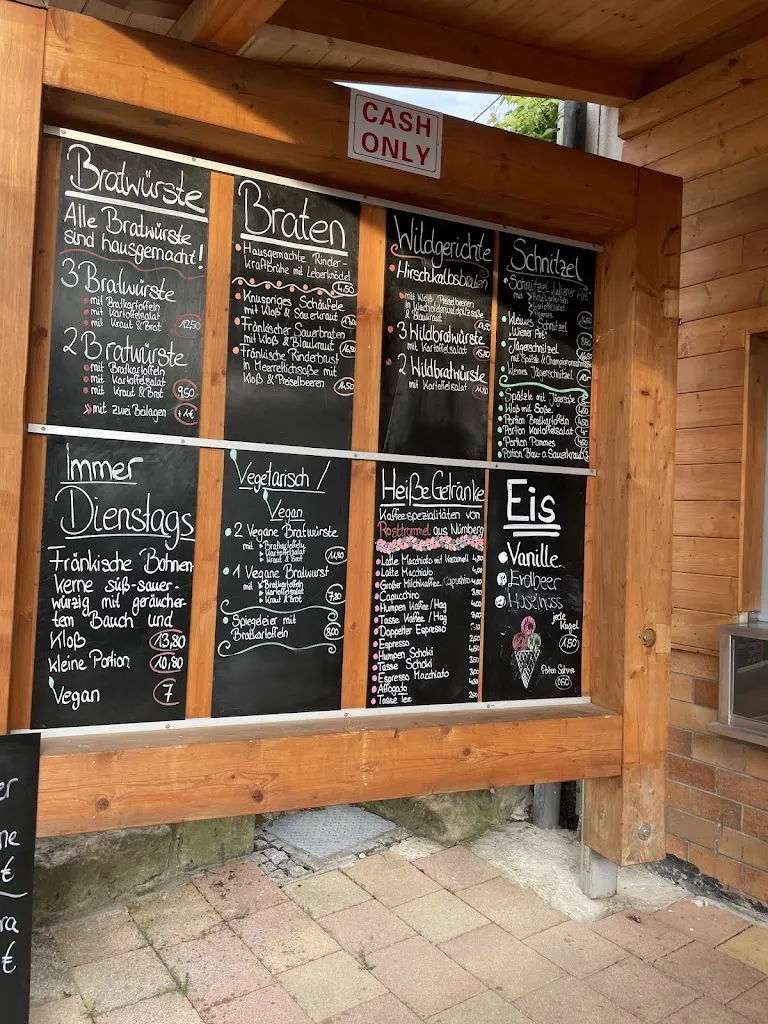 CASH
ONLY
Bratwürste
Alle Bratwürste
sind hausgemacht!
3 Bratwürste
mit Bratkartoffeln
mit Kartoffelsalat
mit Kraut & Brot 12,50
2 Bratwürste
mit Bratkartoffeln
mit Kartoffelsalat
mit Kraut & Brot 9,50
mit zwei Beilagen +1€
Braten
Hausgemachte Rinder-
Kraftbrühe mit Leberknödel
4,50
Knuspriges Schäufele
mit Kloß & Sauerkraut
Fränkischer Sauerbraten
mit Kloß & Blaukraut
Fränkische Rinderbrust
in Meerrettichsoße mit
Kloß & Preiselbeeren
Wildgerichte
Hirschkalbsbraten
mit Kloß, Preiselbeeren
in Wacholderwaldpilzsoße
& Blaukraut
3 Wildbratwürste
mit Kartoffelsalat
2 Wildbratwürste
mit Kartoffelsalat
Schnitzel
Schnitzel Wiener Art
mit Bratkartoffeln
Kartoffelsalat
Pommes
kleines Schnitzel
Wiener Art
Jägerschnitzel
mit Spätzle & Championrahmsoße
kleines Jägerschnitzel
Spätzle mit Jägersoße
Kloß mit Soße
Portion Bratkartoffeln
Portion Kartoffelsalat
Portion Pommes
Portion Blau- o. Sauerkraut
Immer
Dienstags
Fränkische Bohnen-
kerne süß-sauer-
würzig mit geräucher-
tem Bauch und
Kloß 13,80
kleine Portion 10,80
Vegan 7
Vegetarisch /
Vegan
2 Vegane Bratwürste
mit Bratkartoffeln
Kartoffelsalat
Kraut & Brot 11,80
1 Vegane Bratwurst
mit Bratkartoffeln
Kartoffelsalat
Kraut & Brot 7,80
Spiegeleier mit
Bratkartoffeln 8,00
Heiße Getränke
Kaffeespezialitäten von
Rösttrommel aus Nürnberg
Latte Macchiato mit Karamell 4,50
Latte Macchiato 4,00
Großer Milchkaffee
Capucchino
Humpen Kaffee / Hag
Tasse Kaffee / Hag
Doppelter Espresso
Espresso
Humpen Schoki
Tasse Schoki
Espresso Macchiato
Affogato
Tasse Tee
Eis
Vanille
Erdbeer
Haselnuss
jede
Kugel
1,50
Portion Sahne
0,50
er
ne
€
ra
€